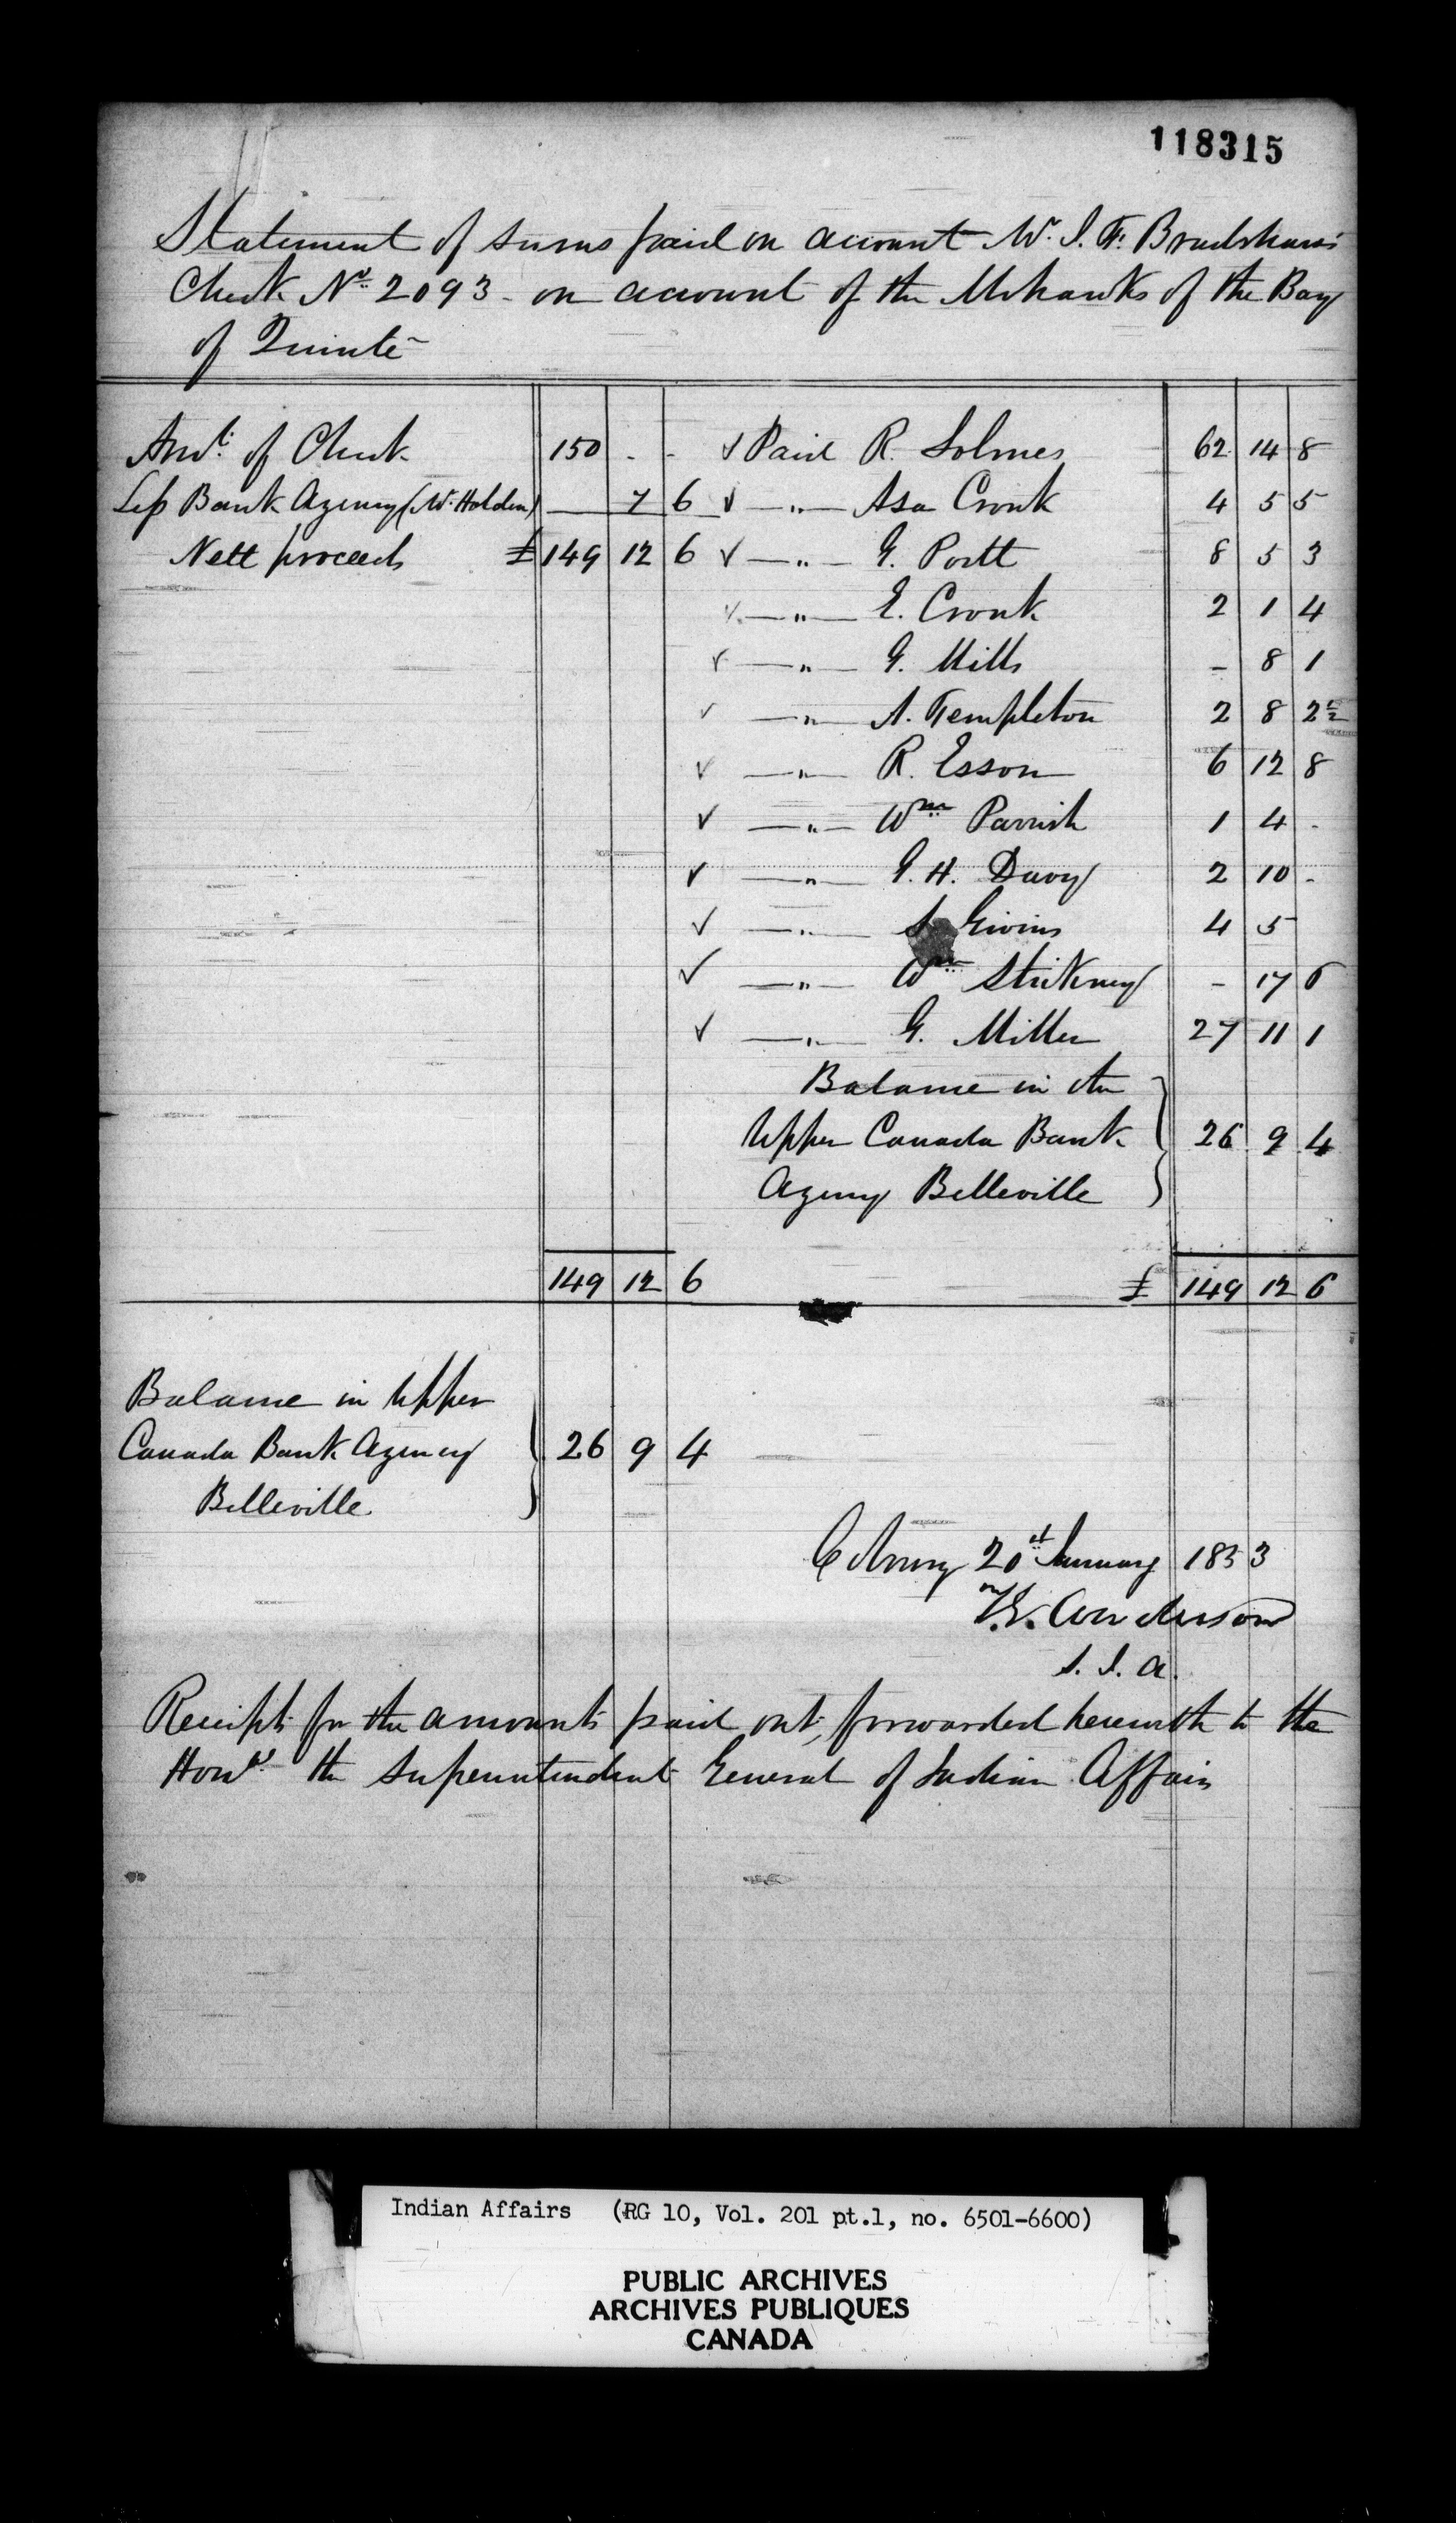 118315
Statement of sums paid on account Mr. S. Y. Bradshaw's
Check No. 2093 - on account of the Mohawks of the Bay
of Quinté
Amt. of Check 150 - - ✓ Paid R. Solmes 62 14 8
Less Bank Agency (Mr. Holden) — 7 6 ✓ — " — Asa Cronk 4 5 5
Nett proceeds £ 149 12 6 ✓ — " — G. Portt 8 5 3
✓ — " — E. Cronk 2 1 4
✓ — " — G. Mills - 8 1
✓ — " — A. Templeton 2 8 2½
✓ — " — R. Esson 6 12 8
✓ — " — Wm Parrish 1 4 -
✓ — " — G. H. Davy 2 10 -
✓ — " — S Givins 4 5
✓ — " — Wm Stickney - 17 6
✓ — " — G. Miller 27 11 1
Balance in the
Upper Canada Bank 26 9 4
Agency Belleville
149 12 6 £ 149 12 6
Balance in Upper
Canada Bank Agency 26 9 4
Belleville
Cobourg 20th January 1853
Anderson
S. I. A.
Receipts for the amounts paid out, forwarded herewith to the
Honbl. the Superintendent General of Indian Affairs
Indian Affairs (RG 10, Vol. 201 pt.1, no. 6501-6600)
PUBLIC ARCHIVES
ARCHIVES PUBLIQUES
CANADA